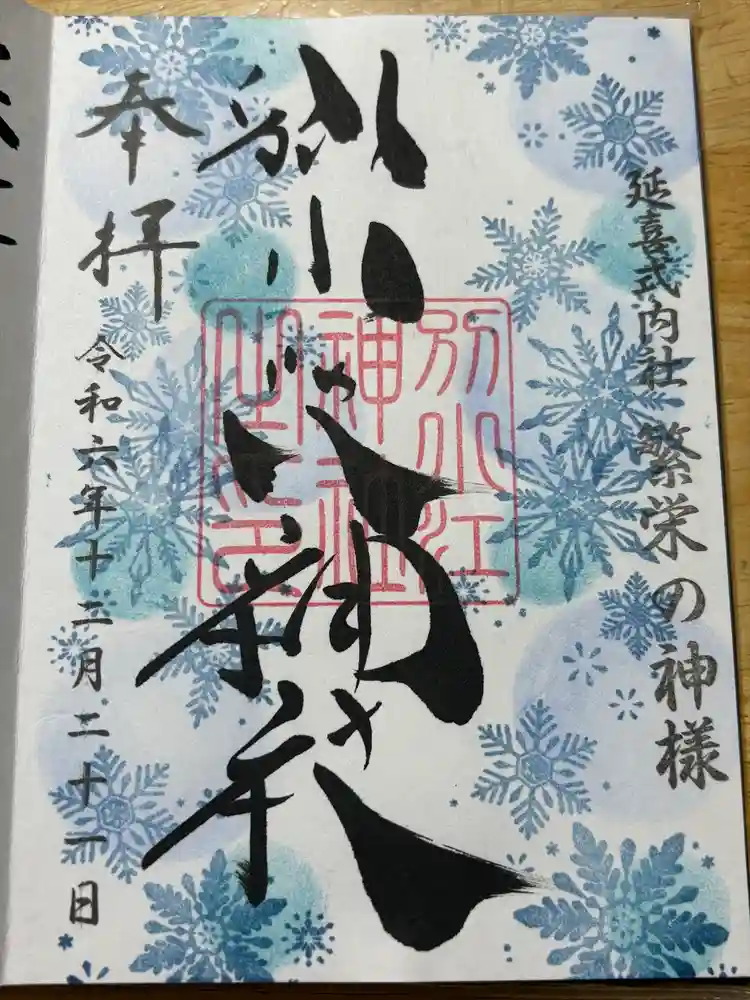 延喜式内社 繁栄の神様
別小江神社
別小江
神社
奉拝
令和六年十二月二十一日